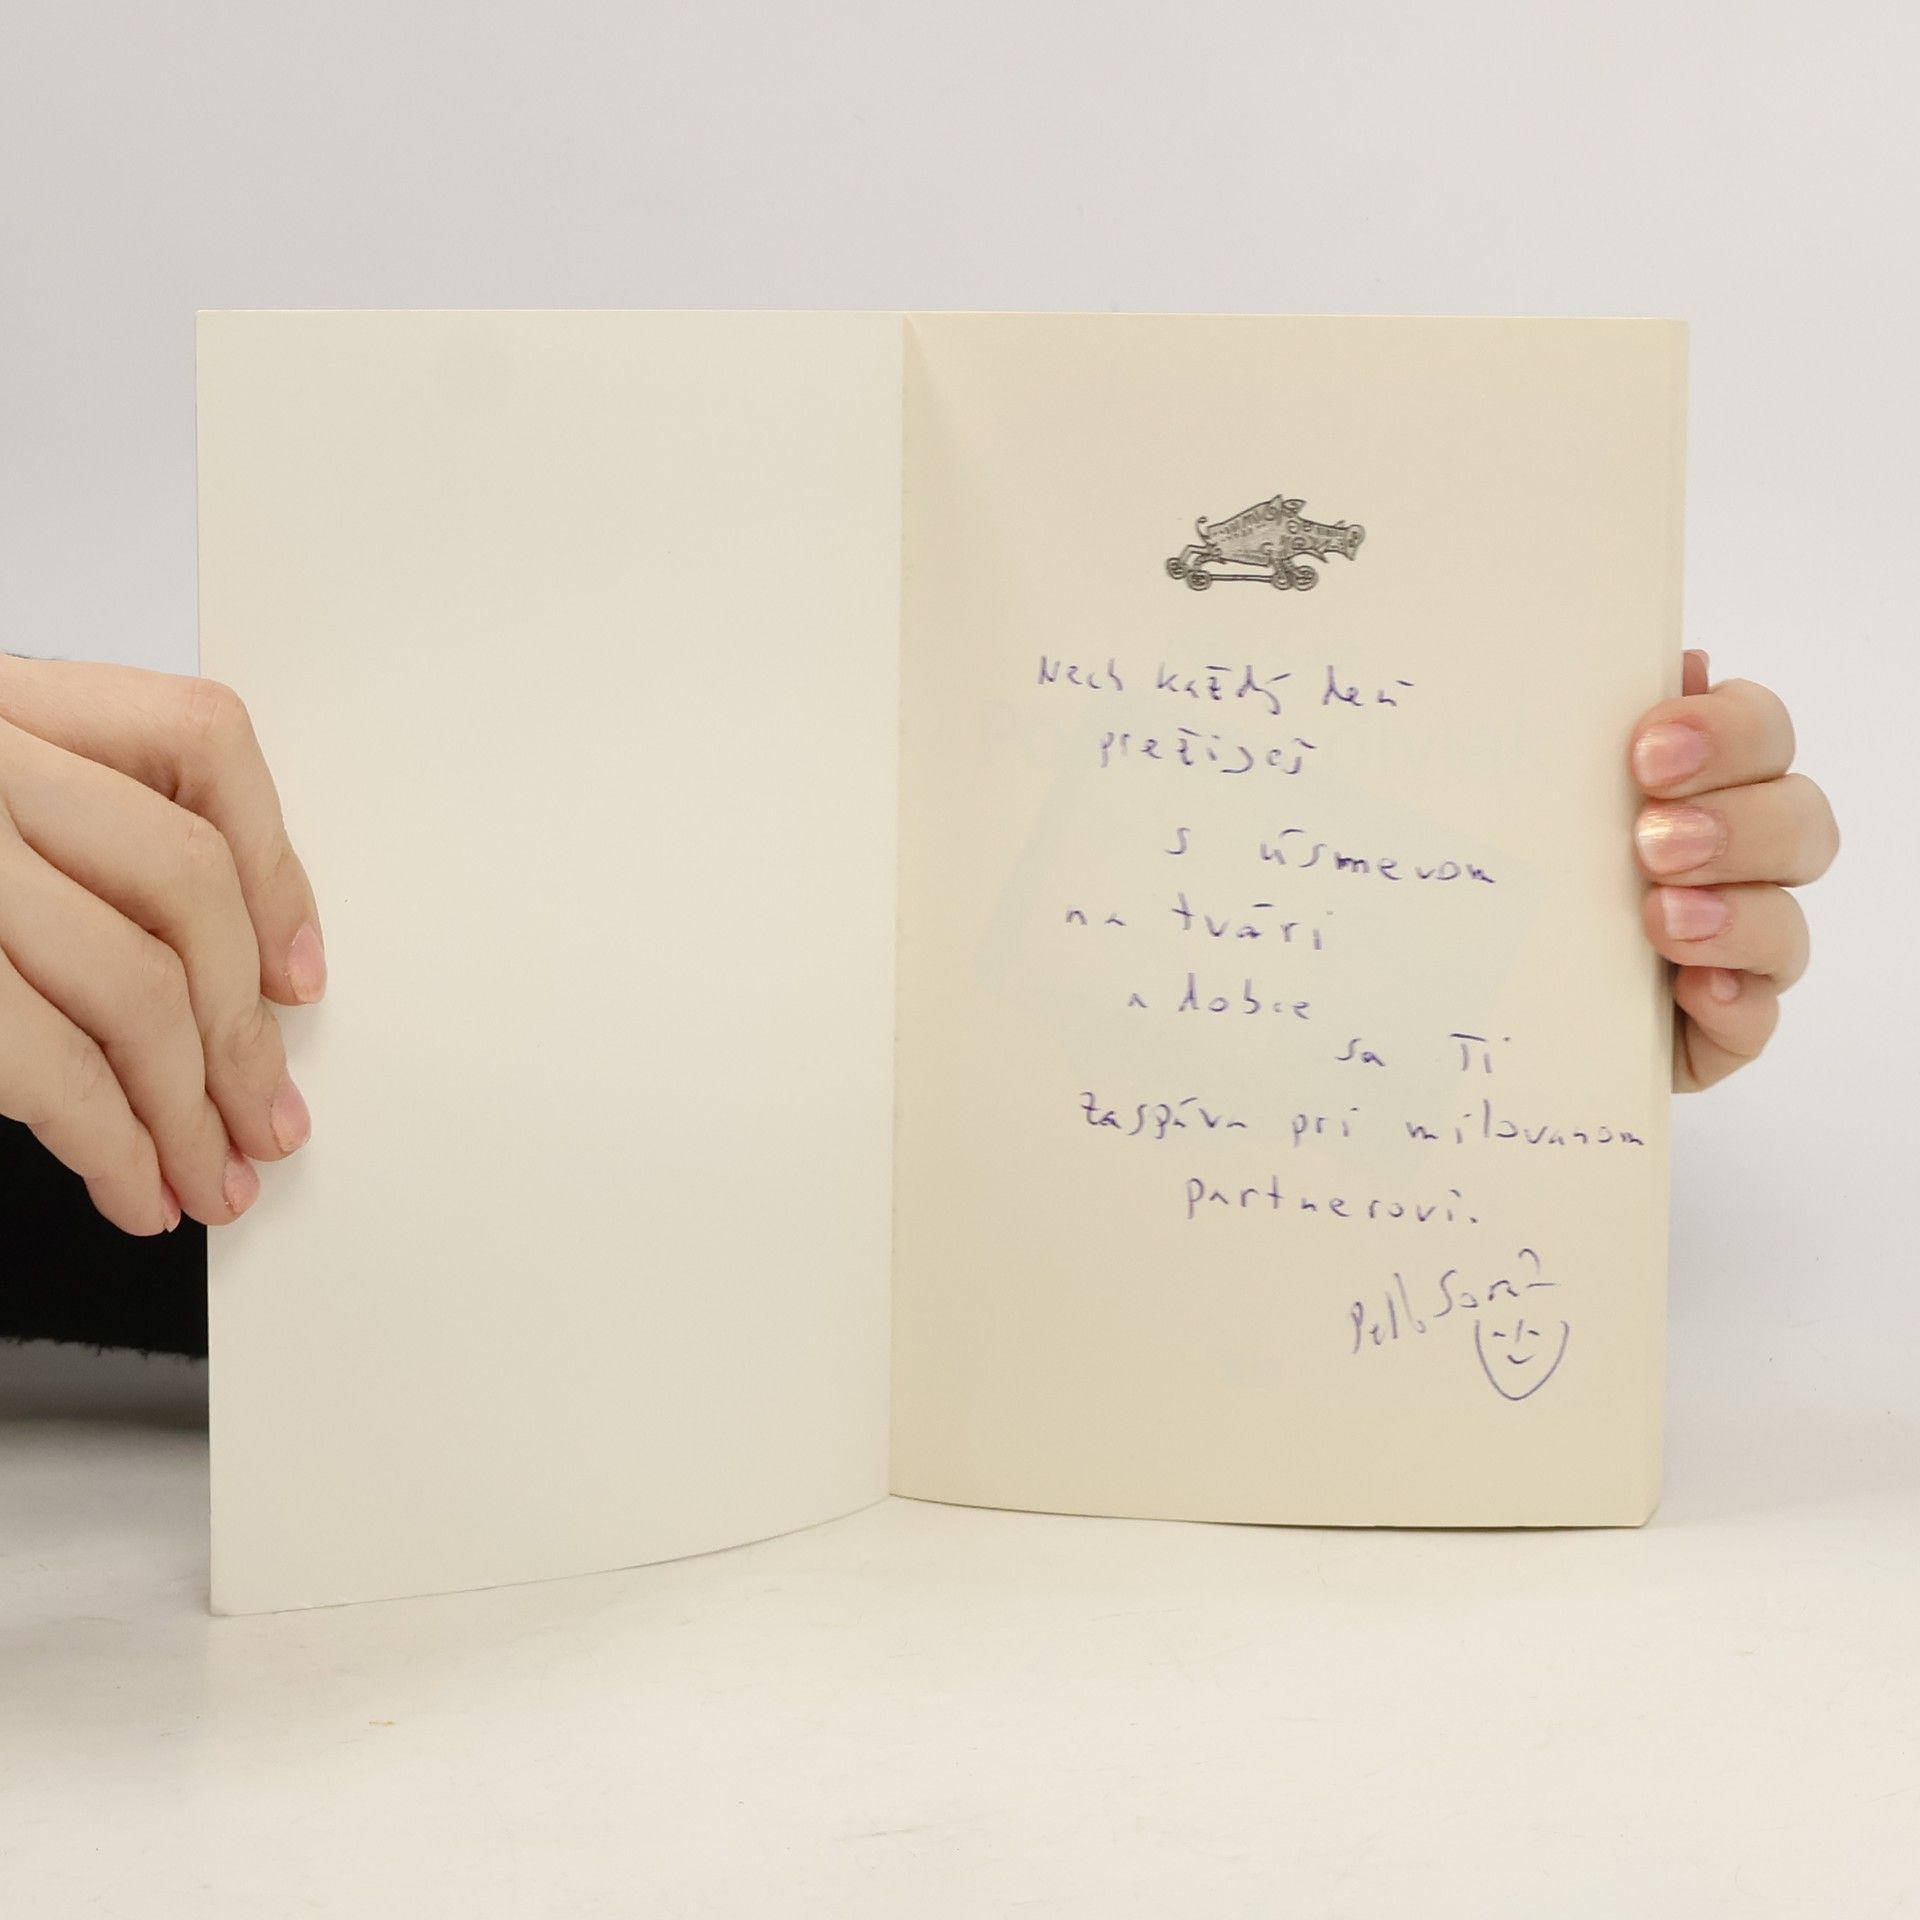 Nech každý deň
prežiješ
s úsmevom
na tvári
a dobre
sa Ti
zaspáva pri milovanom
partnerovi.